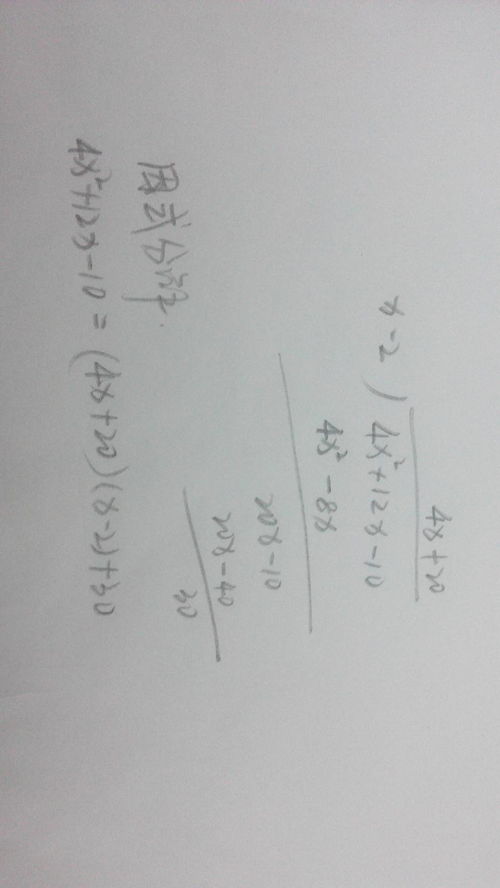 4x+20
x-2 ) 4x²+12x-10
4x²-8x
20x-10
20x-40
30
因式分解.
4x²+12x-10=(4x+20)(x-2)+30